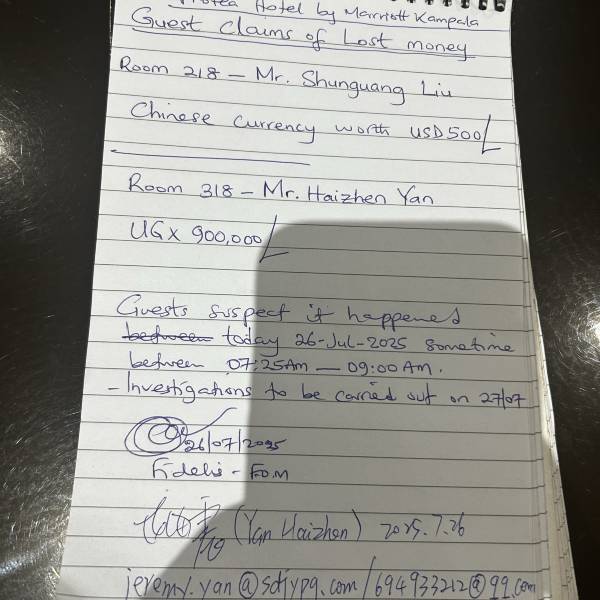 Protea Hotel by Marriott Kampala
Guest Claims of Lost money
Room 218 – Mr. Shunguang Liu
Chinese currency worth USD500/
Room 318 – Mr. Haizhen Yan
UGX 900,000/
Guests suspect it happened
between today 26-Jul-2025 sometime
between 07:25Am — 09:00Am.
- Investigations to be carried out on 27/07
26/07/2025
Fidelis - F.O.M
(Yan Haizhen) 2025.7.26
jeremy.yan@sdjypq.com/694933212@qq.com